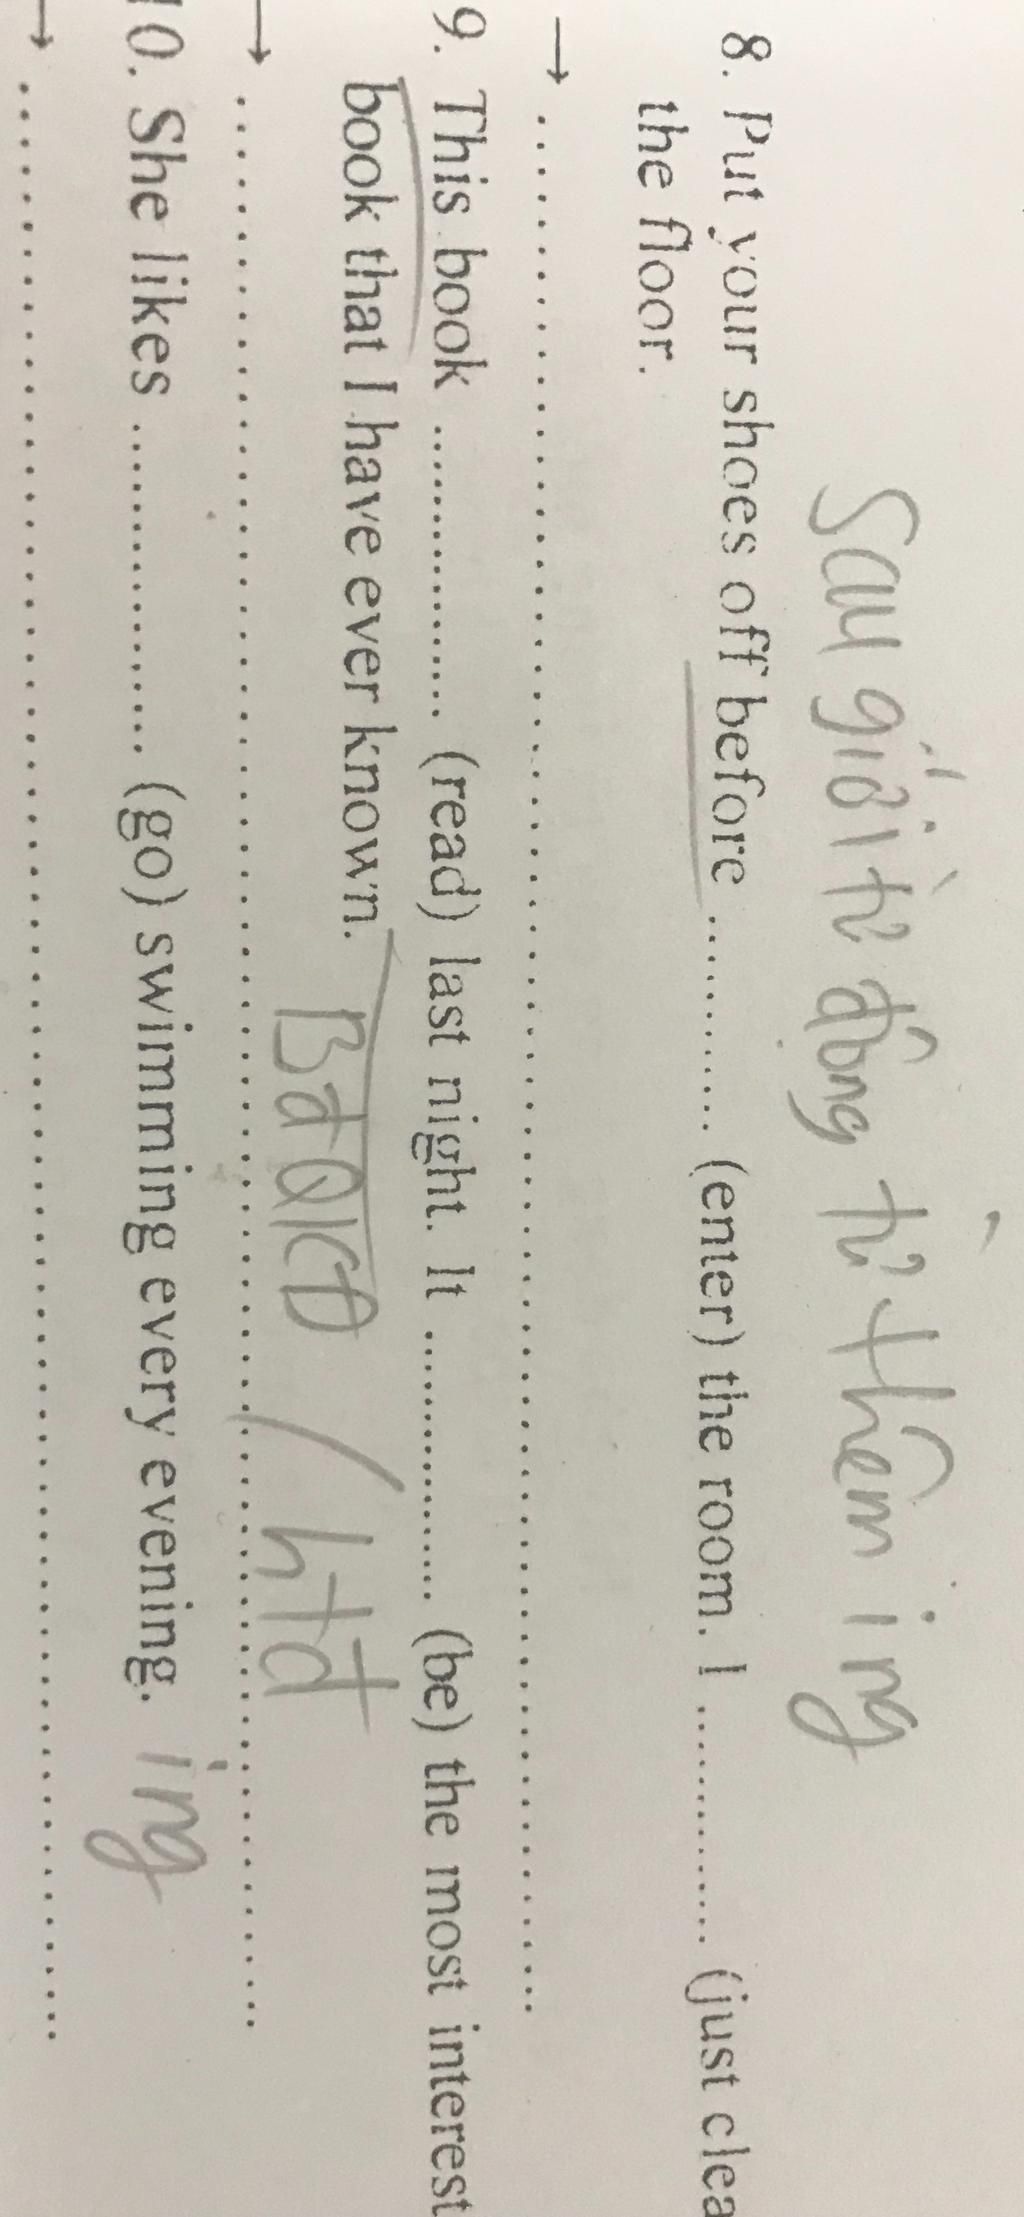 Sau giới từ động từ thêm ing
8. Put your shoes off before ............ (enter) the room. I ............ (just clea
the floor.
→ ............
9. This book ............ (read) last night. It ............ (be) the most interest
book that I have ever known.
/ htđ
→ ............
10. She likes ............ (go) swimming every evening. ing
→ ............